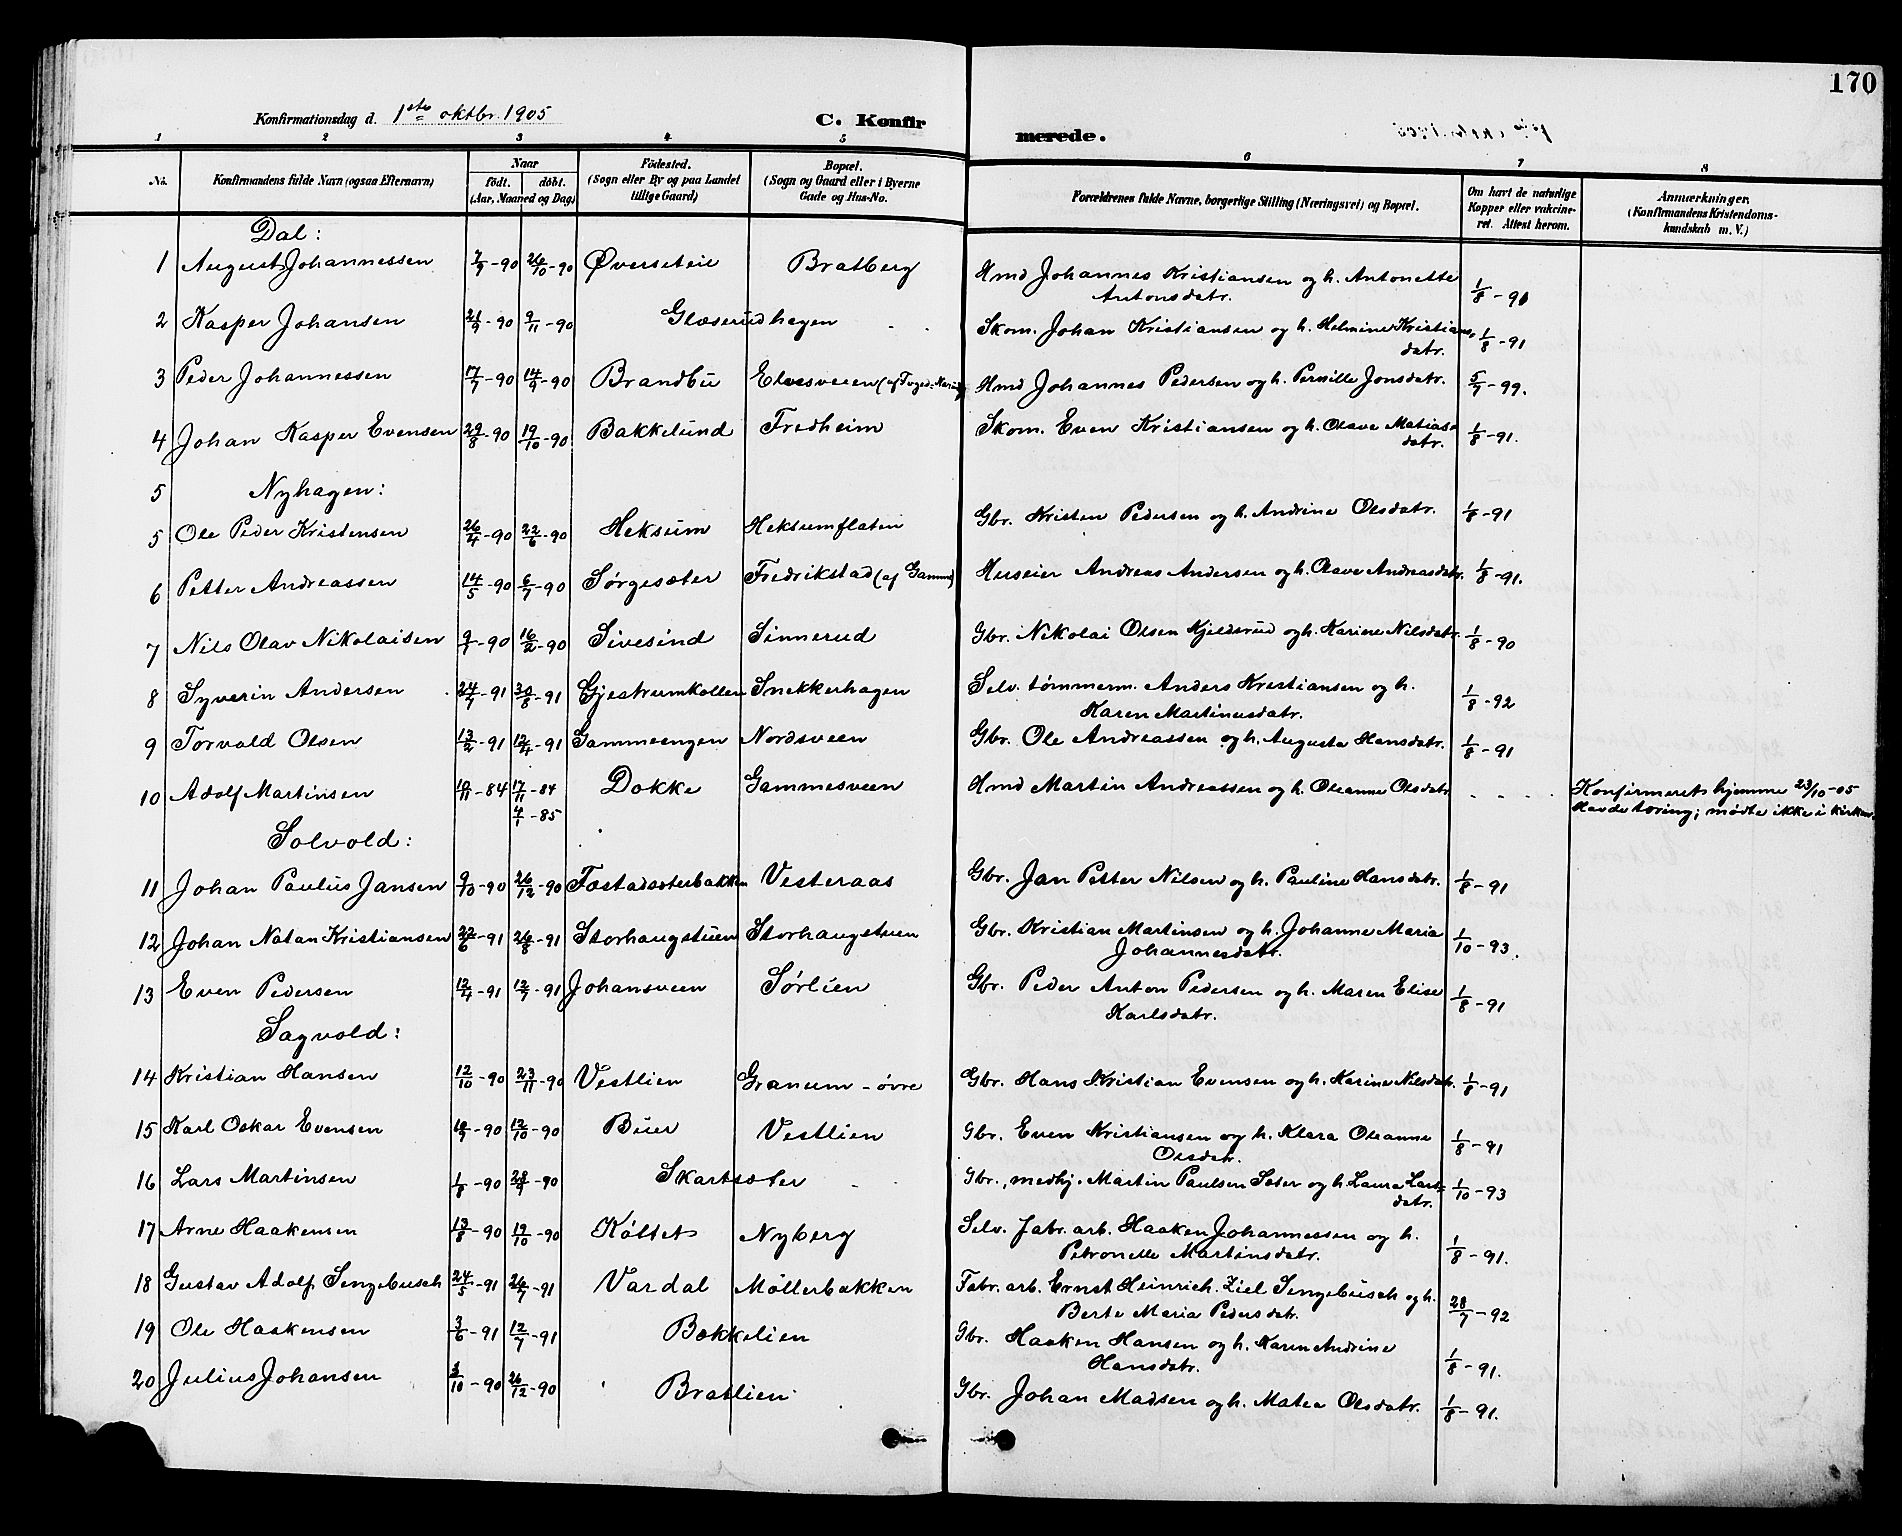 170
Konfirmationsdag d. 1ste oktbr. 1905
C. Konfirmerede.
1 2 3 4 5 6 7 8
No. Konfirmandens fulde Navn (ogsaa Efternavn) Naar födt. döbt. (Aar, Maaned og Dag) Födested. (Sogn eller By og paa Landet tillige Gaard) Bopæl. (Sogn og Gaard eller i Byerne Gade og Hus-No. Forældrenes fulde Navne, borgerlige Stilling (Næringsvei) og Bopæl. Om havt de naturlige Kopper eller vakcineret. Attest herom. Anmærkninger. (Konfirmandens Kristendomskundskab m. V.)
Dal:
1 August Johannessen 7/7-90 26/10-90 Øverseteie Bratberg Hmd Johannes Kristiansen og h. Antonette Antonsdatr. 1/8-91
2 Kasper Johansen 21/9-90 9/11-90 Glæserudhagen Skom. Johan Kristiansen og h. Helmine Kristiansdatr. 1/8-91
3 Peder Johannessen 17/7-90 14/9-90 Brandbu Elvesveen Hmd Johannes Pedersen og h. Pernille Jonsdatr. 5/7-99.
4 Johan Kasper Evensen 29/8-90 19/10-90 Bakkelund Fredheim Skom. Even Kristiansen og h. Olave Matiasdatr. 1/8-91.
5 Nyhagen:
5 Ole Peder Kristensen 26/4-90 22/6-90 Heksum Heksumflaten Gbr. Kristen Pedersen og h. Andrine Olsdatr. 1/8-91
6 Petter Andreassen 14/5-90 6/7-90 Sørgesæter Fredrikstad (af Gamme) Huseier Andreas Andersen og h. Olave Andreasdatr. 1/8-91.
7 Nils Olav Nikolaisen 9/1-90 16/2-90 Sivesind Sinnerud Gbr. Nikolai Olsen Kjeldsrud og h. Karine Nilsdatr. 1/8-90
8 Syverin Andersen 24/7-91 30/8-91 Gjestrumkollen Snekkerhagen Selv. tømmerm. Anders Kristiansen og h. Karen Martinusdatr. 1/8-92
9 Torvald Olsen 13/2-91 12/4-91 Gammeengen Nordsveen Gbr. Ole Andreassen og h. Augusta Hansdatr. 1/8-91
10 Adolf Martinsen 10/11-84 17/11-84 4/1-85 Dokke Gammesveen Hmd Martin Andreassen og h. Oleanne Olsdatr. - - - Konfirmeret hjemme 23/10-05 Havde tæring; mødte ikke i kirken.
Solvold:
11 Johan Paulus Jansen 9/10-90 26/12-90 Fostadsæterbakken Vesteraas Gbr. Jan Petter Nilsen og h. Pauline Hansdatr. 1/8-91
12 Johan Natan Kristiansen 22/6-91 26/8-91 Storhaugstuen Storhaugstuen Gbr. Kristian Martinsen og h. Johanne Maria Johannesdatr. 1/10-93.
13 Even Pedersen 12/4-91 12/7-91 Johansveen Sørlien Gbr. Peder Anton Pedersen og h. Maren Elise Karlsdatr. 1/8-91
Sagvold:
14 Kristian Hansen 12/10-90 23/11-90 Vestlien Granum - övre Gbr. Hans Kristian Evensen og h. Karine Nilsdatr. 1/8-91
15 Karl Oskar Evensen 10/9-90 12/10-90 Buer Vestlien Gbr. Even Kristiansen og h. Klara Oleanne Olsdatr. 1/8-91
16 Lars Martinsen 1/8-90 28/9-90 Skartsæter Gbr., medhj. Martin Paulsen Sæter og h. Laura Larsdatr. 1/10-93
17 Arne Haakensen 13/8-90 19/10-90 Költet Nyberg Selv. fabr. arb. Haaken Johannessen og h. Petronelle Martinsdatr. 1/8-91.
18 Gustav Adolf Sengebusch 24/5-91 26/7-91 Vardal Möllerbakken Fabr. arb. Ernst Heinrich Ziel Sengebusch og h. Berte Maria Pedersdatr. 28/7-92
19 Ole Haakensen 3/6-91 12/7-91 Bækkelien Gbr. Haaken Hansen og h. Karen Andrine Hansdatr. 1/8-91.
20 Julius Johansen 3/10-90 26/12-90 Bratlien Gbr. Johan Madsen og h. Matea Olsdatr. 1/8-91.